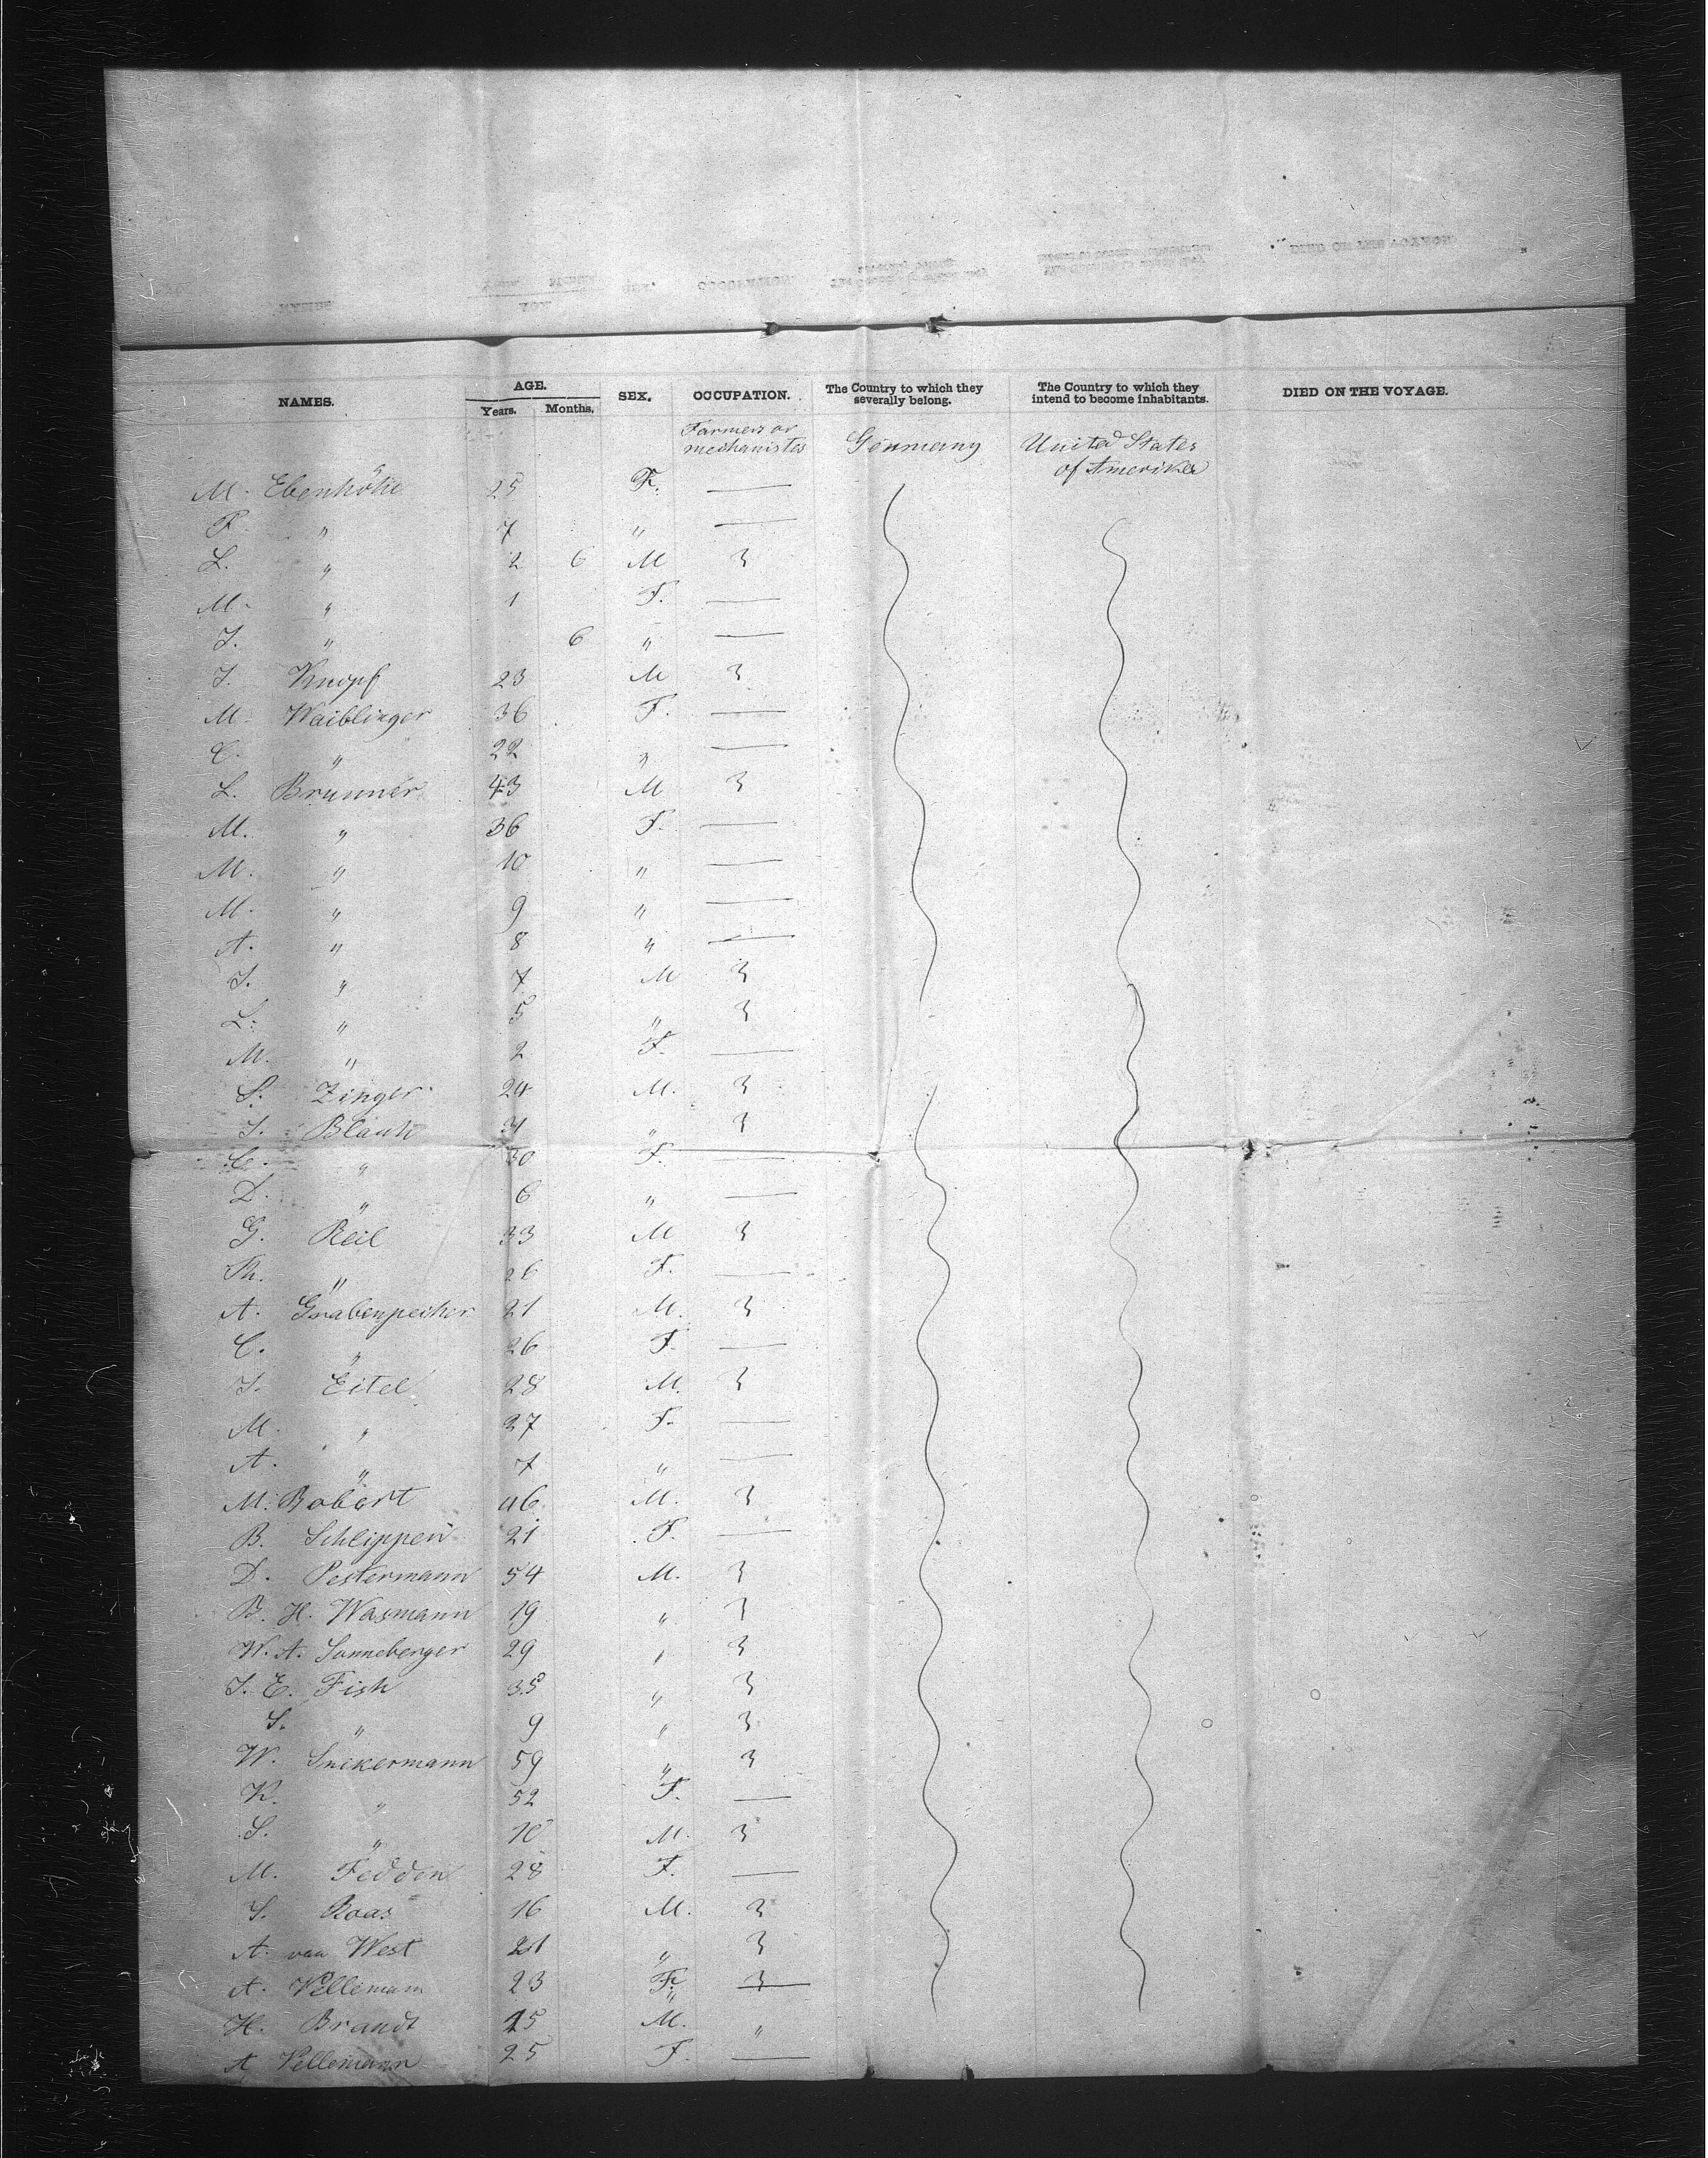 NAMES. AGE. SEX. OCCUPATION. The Country to which they severally belong. The Country to which they intend to become inhabitants. DIED ON THE VOYAGE.
Years. Months.
Farmers or mechanistes Germany United States of Amerika
M. 25 F. —
F. " 7 " —
L. " 2 6 M 3
M. " 1 F. —
J. " 6 " —
J. Knopf 23 M 3
M. Waiblinger 36 F. —
C. " 22 " —
L. Brunner 43 M 3
M. " 36 F. —
M. " 10 " —
M. " 9 " —
A. " 8 " —
J. " 7 M 3
L. " 5 " 3
M. " 2 F. —
S. Zinger 24 M. 3
J. 31 " 3
C. " 30 F. —
D. " 6 " —
G. Reil 33 M 3
Th. " 26 F. —
A. Grabenpecher 21 M. 3
C. " 26 F. —
J. Eitel 28 M. 3
M. " 27 F. —
A. " 7 " —
M. Robert 46 M. 3
B. Schlippen 21 F. —
D. Pestermann 54 M. 3
B. H. Wasmann 19 " 3
W. A. Sonneberger 29 " 3
J. E. Fish 35 " 3
S. " 9 " 3
W. 59 " 3
K. " 52 F. —
S. " 10 M. 3
M. Fedden 28 F. —
S. Roas 16 M. 3
A. van West 21 " 3
A. Vellemann 23 F. —
H. Brandt 25 M. "
A Vellemann 25 F. —